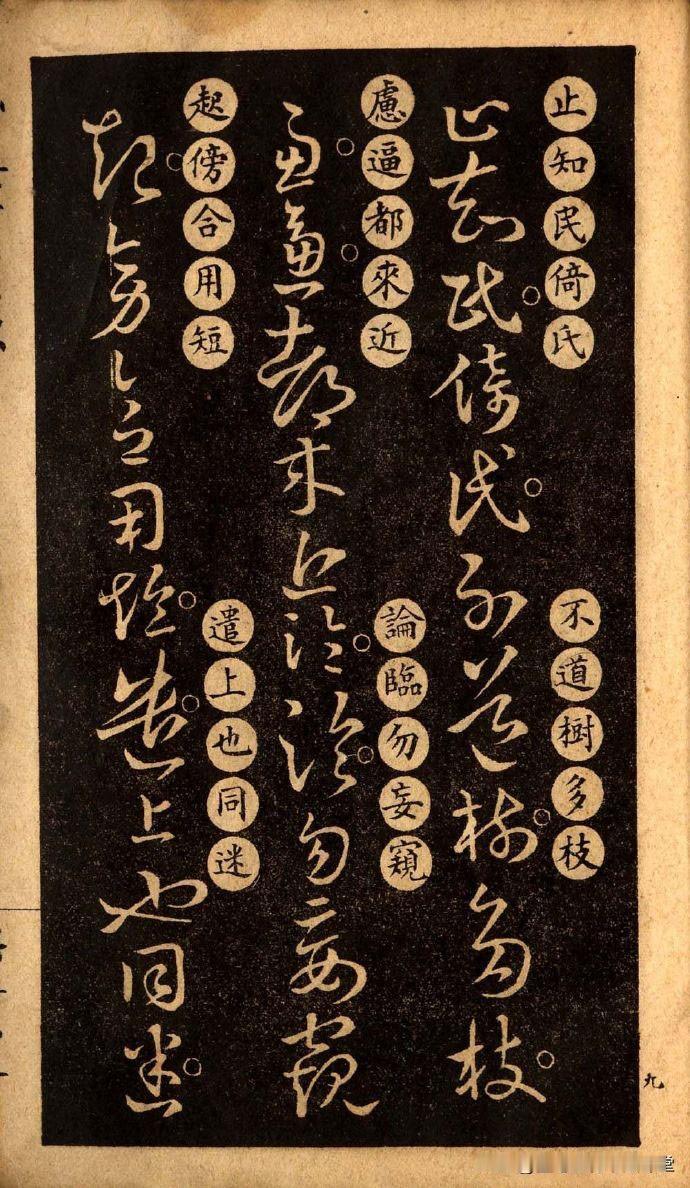 止知民倚氏
不道樹多枝
慮逼都來近
論臨勿妄窺
起傍合用短
遣上也同迷
九